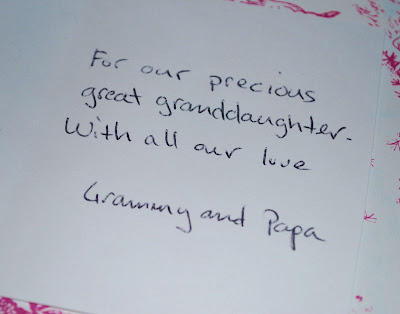 For our precious
great granddaughter.
With all our love
Grammy and Papa